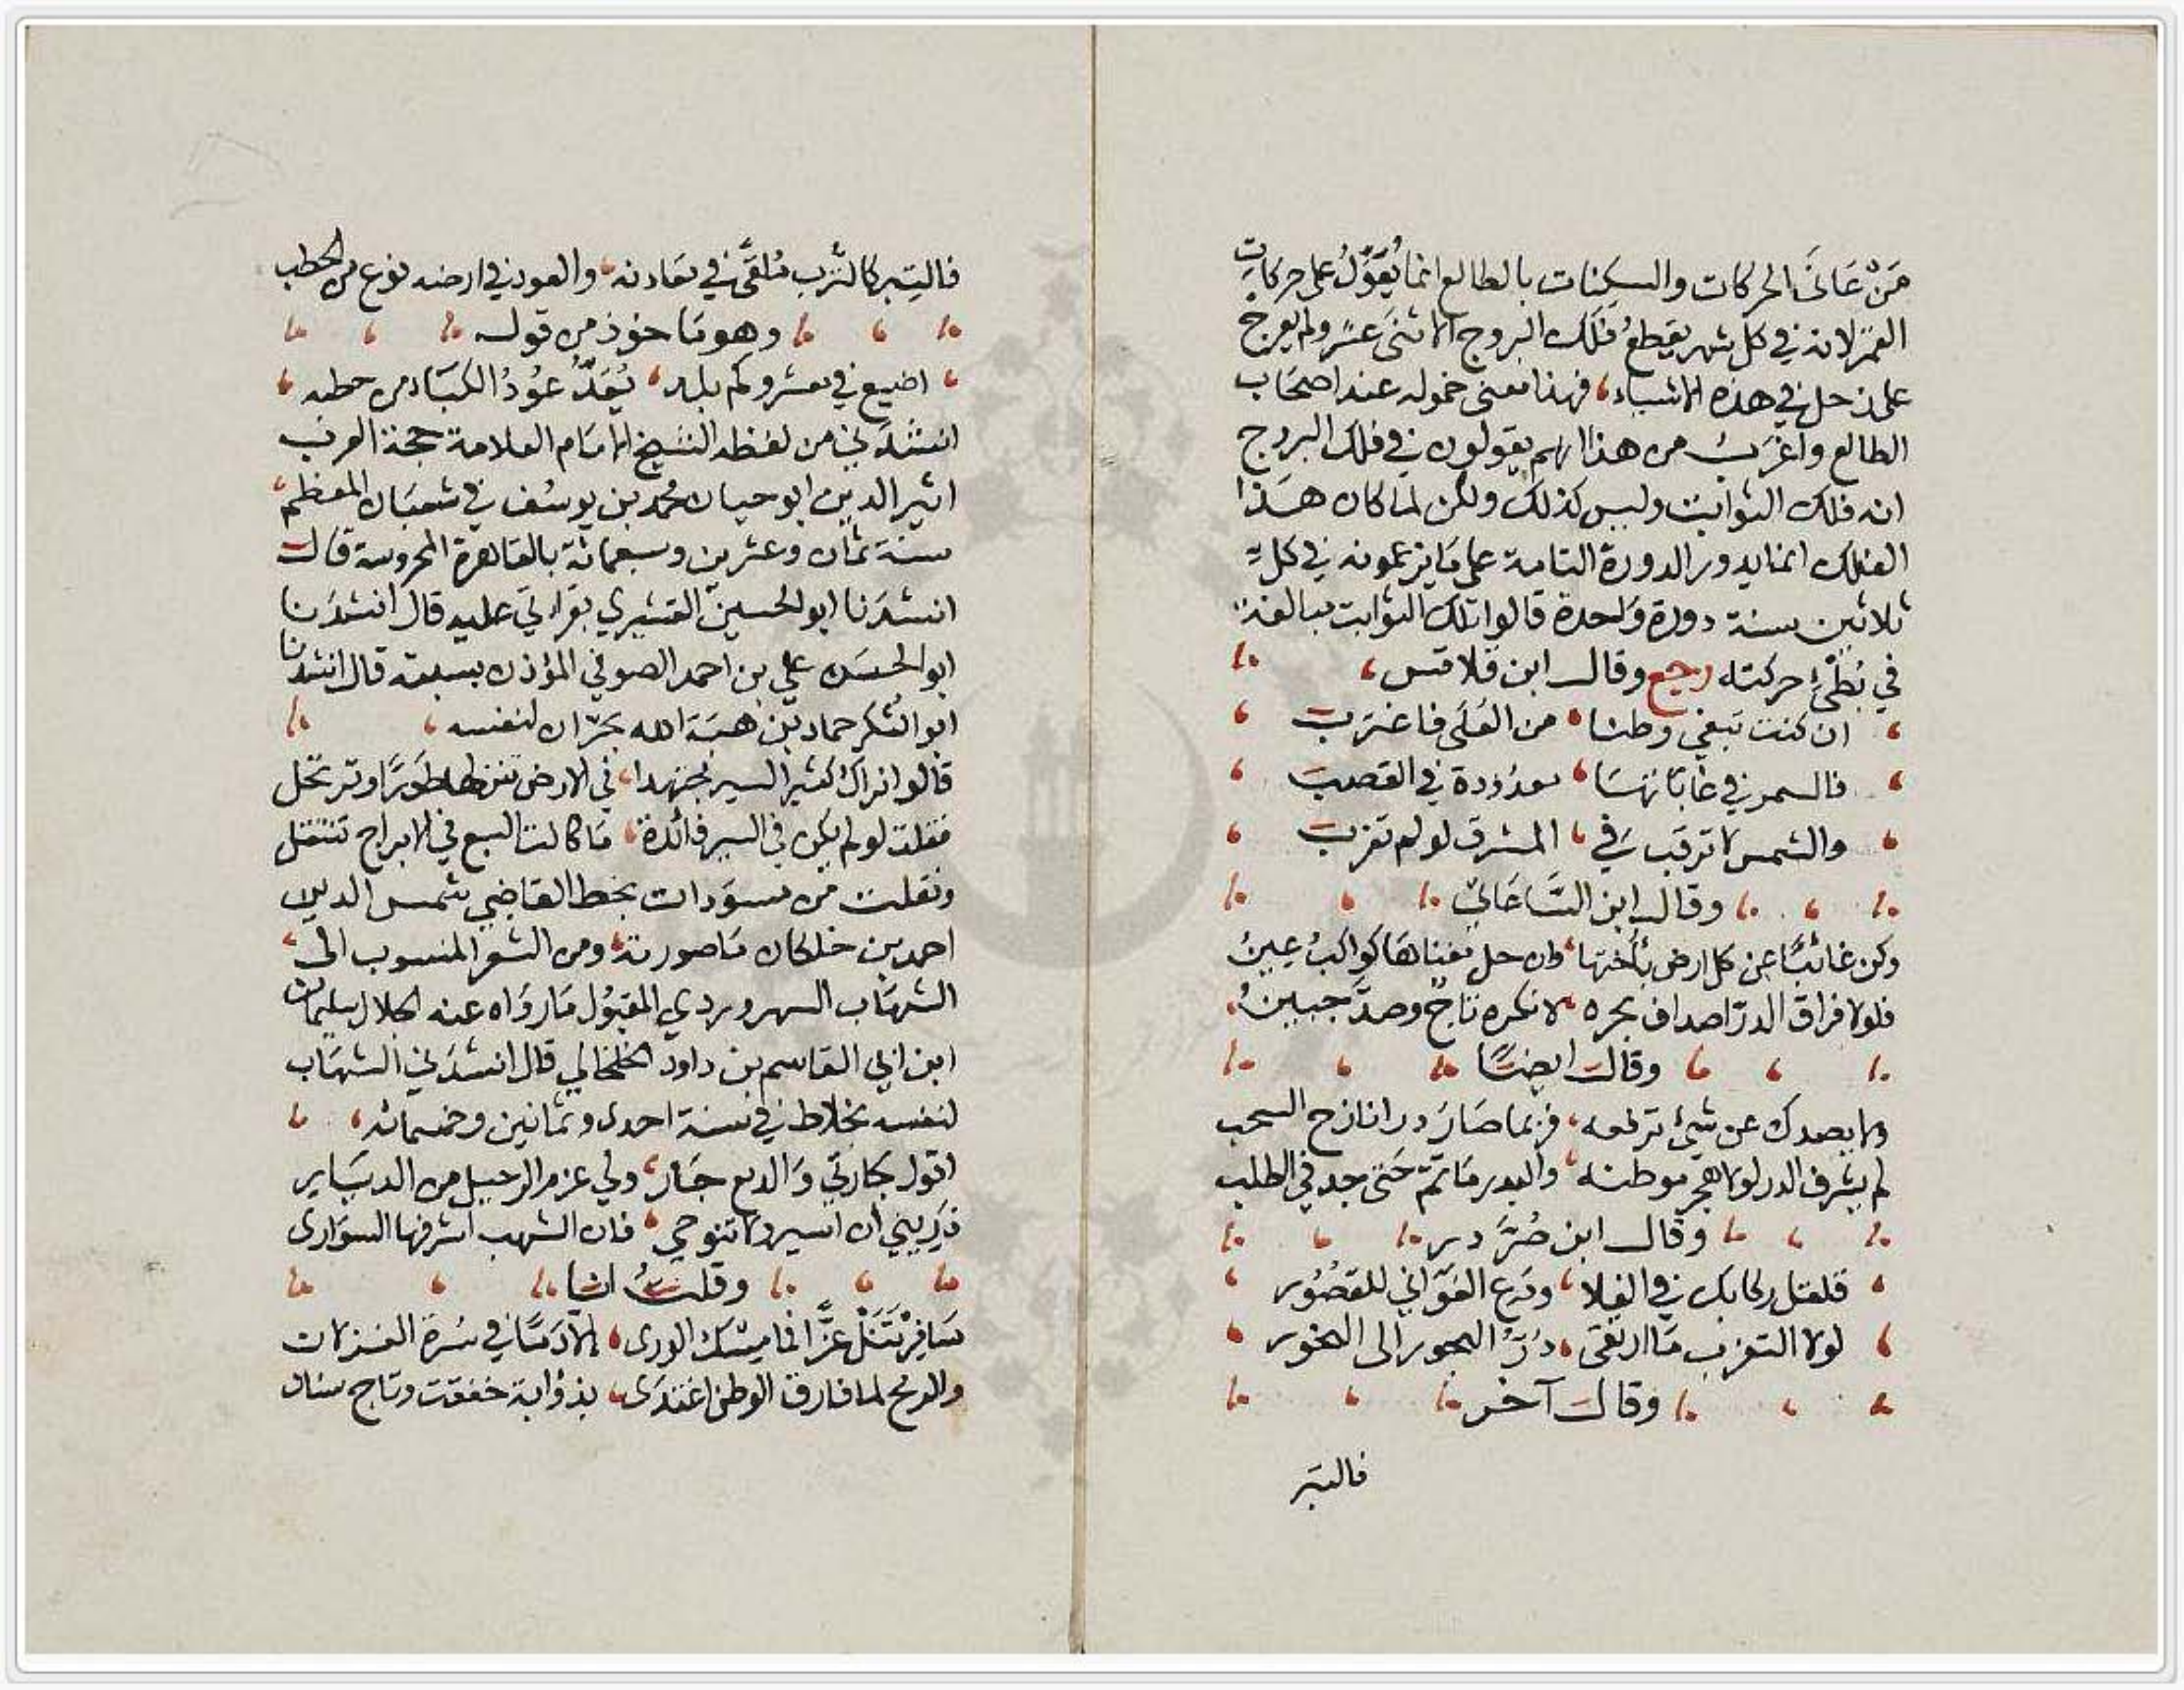 مَنْ عَانَى الحركات والسكنات بالطالع انما يُعَوِّلُ على حركات
القمر لانه في كل شهر يقطعُ فلك البروج الاثنى عشر ولم يعرج
على زحل في هذه الاشياء، فهذا معنى خموله عند اصحاب
الطالع واغرب من هذا انهم يقولون في فلك البروج
انه فلك الثوابت وليس كذلك ولكن لما كان هذا
الفلك انما يدور الدورة التامة على ما يزعمونه في كل
ثلاثين سنة دورة واحدة قالوا تلك الثوابت مبالغة
في بُطْئ حركته رجع وقال ابن قلاقس،
ان كنت تبغي وطنا، من العُلَى فاغترب
فالسمر في غاباتها، معدودة في القصب
والشمس لا ترقب في، المشرق لو لم تغرب
وقال ابن الساعاتي
وكن غائبًا عن كل ارض بأختها، وان حل مغناها كواكبُ عينُ
فلولا فراق الدرّ اصداف بحره، لانكره تاجٌ وصدَّ جبينُ
وقال ايضًا
ولا يصدك عن شئ ترفعه، فربما صارَ درا نازح السحب
لم يشرف الدر لولا هجر موطنه، والبدر ما تمّ حتى جد في الطلب
وقال ابن صُرَّ در
قلقل ركابك في الفلا، ودع الغواني للقصُور
لولا التغرب ما ارتقى، دُرّ البحور الى النحور
وقال آخر
فالتبر
فالتبر كالتُرب مُلقًى في معادنه، والعود في ارضه نوع من الحطب
وهو مأخوذ من قوله
اضيع في معشر وكم بلد، يُعَدُّ عُودُ الكباء من حطبه
انشدني من لفظه الشيخ الامام العلامة حجة العرب
اثير الدين ابو حيان محمد بن يوسف في شعبان المعظم،
سنة ثمان وعشرين وسبعمائة بالقاهرة المحروسة قال
انشدَنا ابو الحسين القشيري بقراءتي عليه قال انشدَنا
ابو الحسن علي بن احمد الصوفي المؤذن بسبته قال انشدنا
ابو الشكر حماد بن هبة الله بحرّان لنفسه،
قالوا نراك كثير السير مجتهدا، في الارض تنزلها طَورًا وترتحل
فقلت لو لم يكن في السير فائدة، ما كانت السبع في الابراج تنتقل
ونقلت من مسوّدات بخط القاضي شمس الدين
احمد بن خلكان ما صورته، ومن الشعر المنسوب الى،
الشهاب السهروردي المقتول ما رواه عنه الجلال سليمان
ابن ابي القاسم بن داود الخلخالي قال انشدَني الشهاب
لنفسه بخلاط في سنة احدى وثمانين وخمسمائه،
اقول لجارتي والدمع جَار، ولي عزم الرحيل من الديار
ذريني ان اسير ولا تنوحي، فان الشهب اشرفها السوارى
وقلتُ انا
سَافِرْ تَنَلْ عزًّا فما مِسْك الورى، الا دمًا في سُرة الغزلان
والرمح لما فارق الوطن اغتدَى، بذؤابة خفقت وتاج سنان